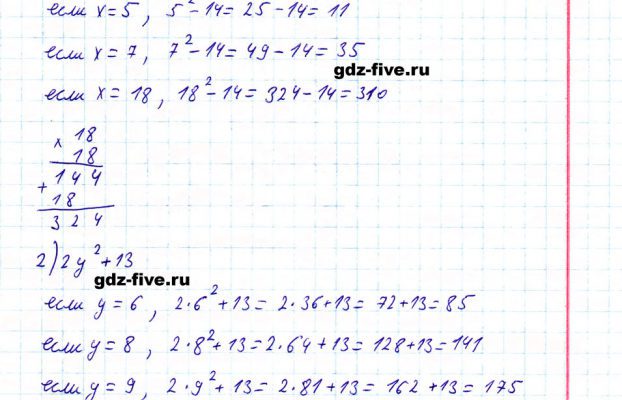 если x=5, 5²-14=25-14=11
если x=7, 7²-14=49-14=35
gdz-five.ru
если x=18, 18²-14=324-14=310
× 18
18
+ 144
18
324
2) 2y²+13
gdz-five.ru
если y=6, 2·6²+13=2·36+13=72+13=85
если y=8, 2·8²+13=2·64+13=128+13=141
если y=9, 2·9²+13=2·81+13=162+13=175